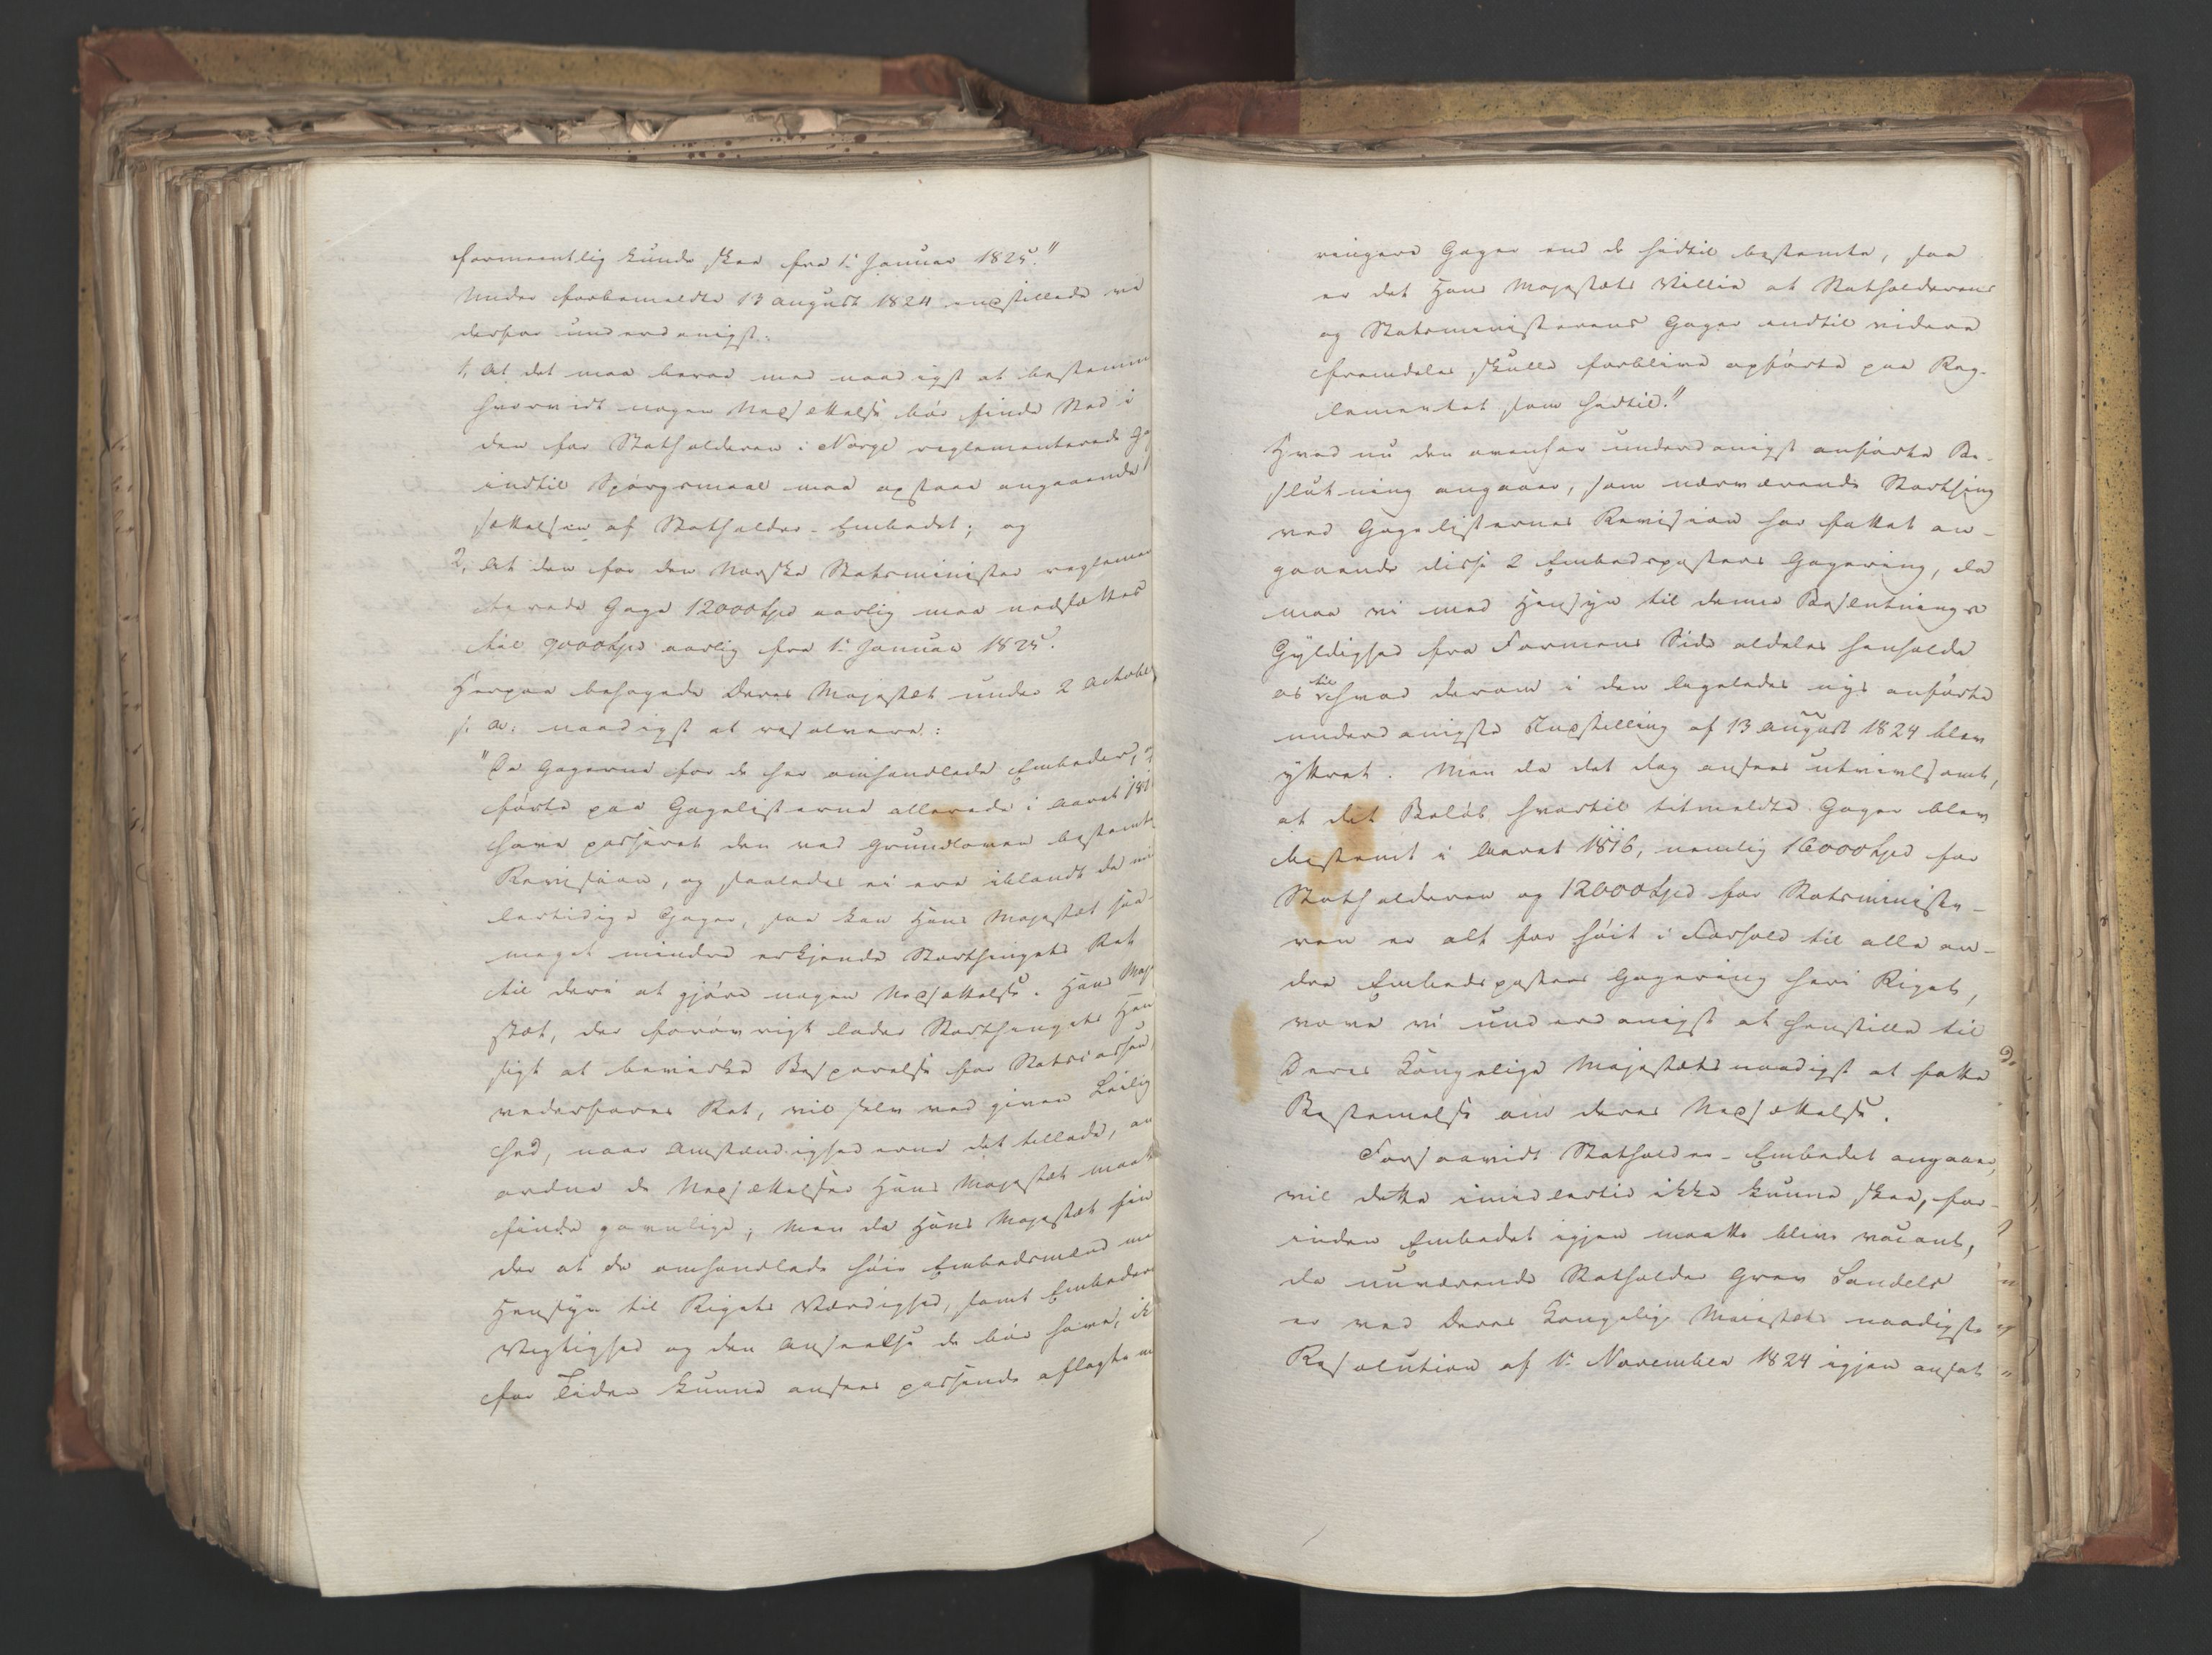 formeentlig kunde skee fra 1: Januar 1825."
Under forbemeldte 13 august 1824 indstillede vi
derfor underdanigst:
1, At det maa beroe med naadigst at bestemme
hvorvidt nogen Nedsættelse bør finde Sted i
den for Statholderen i Norge reglementerede Ga
indtil Spörgsmaal maa opstaae angaaende
sættelsen af Statholder-Embedet; og
2, At den for den Norske Statsminister reglemen
terede Gage 12000 Spd aarlig maa nedsættes
til 9000 Spd aarlig fra 1: Januar 1825.
Herpaa behagede Deres Majestæt under 2 October
s. A. naadigst at resolvere:
"Da Gagerne for de her omhandlede Embeder, op
førte paa Gagelisterne allerede i Aaret 181
have passeret den ved Grundloven bestemte
Revision, og saaledes ei ere iblandt de mid
lertidige Gager, saa kan Hans Majestæt saa
meget mindre erkjende Storthingets Ret
til deri at gjøre nogen Nedsættelse. Hans Maje
stæt, der forøvrigt lader Storthingets Hen
sigt at bevirke Besparelse for Statscassen
vederfares Ret, vil selv ved given Leilig
hed, naar Omstændighederne det tillade, an
ordne de Nedsættelser Hans Majestæt maatte
finde gavnlige; Men da Hans Majestæt fin
der at de omhandlede høie Embedsmænd med
Hensyn til Rigets Værdighed, samt Embeders
Vigtighed og den Anseelse de bør have, ik
for Tiden kunne ansees passende aflagte m
ringere Gager end de hidtil bestemte, saa
er det Hans Majestæts Villie at Statholderens
og Statsministerens Gager indtil videre
fremdeles skulle forblive opførte paa Reg-
lementet som hidtil."
Hvad nu den ovenfor underdanigst anførte Be-
slutning angaaer, som nærværende Storthing
ved Gagelisternes Revision har fattet an-
gaaende disse 2 Embedsposters Gagering, da
maa vi med Hensyn til denne Beslutnings
Gyldighed fra Formens Side aldeles henholde
os til hvad derom i den ligeledes nys anførte
underdanigste Indstilling af 13 august 1824 blev
yttret. Men da det dog ansees utvivlsomt,
at det Beløb hvortil titmeldte Gager blev
bestemt i Aaret 1816, nemlig 16000 Spd for
Statholderen og 12000 Spd for Statsministe-
ren er alt for høit i Forhold til alle an-
dre Embedsposters Gagering her i Riget,
vove vi underdanigst at henstille til
Deres Kongelige Majestæts naadigst at fatte
Bestemelse om deres Nedsættelse.
Forsaavidt Statholder-Embedet angaaer,
vil dette imidlertid ikke kunne skee, for-
inden Embedet igjen maatte blive vacant,
da nuværende Statholder Grev Sandels
er ved Deres Kongelige Majestæts naadigste
Resolution af 1: November 1824 igjen ansat